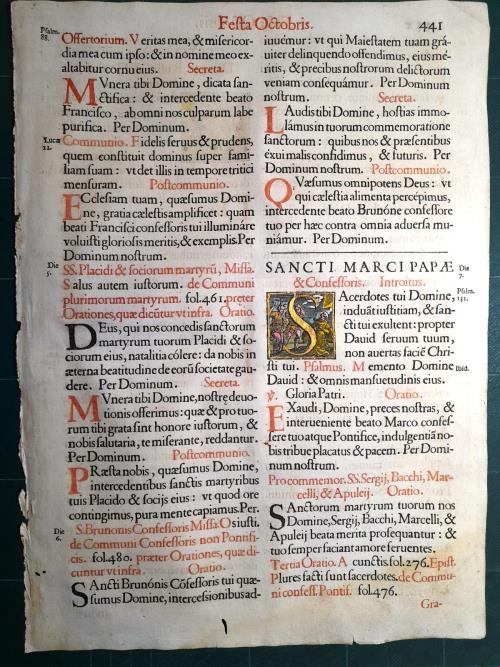 Festa Octobris. 441
Psalm. 88.
Offertorium. Veritas mea, & misericor-
dia mea cum ipso: & in nomine meo ex-
altabitur cornu eius. Secreta.
MVnera tibi Domine, dicata san-
ctifica: & intercedente beato
Francisco, ab omni nos culparum labe
purifica. Per Dominum.
Lucæ 12.
Communio. Fidelis seruus & prudens,
quem constituit dominus super fami-
liam suam: vt det illis in tempore tritici
mensuram. Postcommunio.
ECclesiam tuam, quæsumus Domi-
ne, gratia cælestis amplificet: quam
beati Francisci confessoris tui illumináre
voluisti gloriosis meritis, & exemplis. Per
Dominum nostrum.
Die 5.
SS. Placidi & sociorum martyrũ, Missa.
Salus autem iustorum. de Communi
plurimorum martyrum. fol. 461. præter
Orationes, quæ dicũtur vt infra. Oratio.
DEus, qui nos concedis sanctorum
martyrum tuorum Placidi & so-
ciorum eius, natalitia cólere: da nobis in
æterna beatitudine de eorũ societate gau-
dere. Per Dominum. Secreta.
MVnera tibi, Domine, nostrę deuo-
tionis offerimus: quæ & pro tuo-
rum tibi grata sint honore iustorum, &
nobis salutaria, te miserante, reddantur.
Per Dominum. Postcommunio.
PRæsta nobis, quæsumus Domine,
intercedentibus sanctis martyribus
tuis Placido & socijs eius: vt quod ore
contingimus, pura mente capiamus. Per.
Die 6.
S. Brunonis Confessoris Missa. Os iusti.
de Communi Confessoris non Pontifi-
cis. fol. 480. præter Orationes, quæ di-
cuntur vt infra. Oratio.
SAncti Brunónis Cõfessoris tui quæ-
sumus Domine, intercessionibus ad-
iuuémur: vt qui Maiestatem tuam grá-
uiter delinquendo offendimus, eius mé-
ritis, & precibus nostrorum delictorum
veniam consequámur. Per Dominum
nostrum. Secreta.
LAudis tibi Domine, hostias immo-
lámus in tuorum commemoratione
sanctorum: quibus nos & præsentibus
éxui malis confidimus, & futuris. Per
Dominum nostrum. Postcommunio.
QVæsumus omnipotens Deus: vt
qui cælestia alimenta percépimus,
intercedente beato Brunóne confessore
tuo per hæc contra omnia aduersa mu-
niámur. Per Dominum.
SANCTI MARCI PAPÆ
Die 7.
& Confessoris. Introitus.
Psalm. 131.
SAcerdotes tui Domine,
induãt iustitiam, & san-
cti tui exultent: propter
Dauid seruum tuum,
non auertas faciẽ Chri-
sti tui. Psalmus. Memento Domine
Ibid.
Dauid: & omnis mansuetudinis eius.
℣. Gloria Patri. Oratio.
EXaudi, Domine, preces nostras, &
interueniente beato Marco confes-
sore tuo atque Pontifice, indulgentiã no-
bis tribue placatus & pacem. Per Domi-
num nostrum.
Pro commemor. SS. Sergij, Bacchi, Mar-
celli, & Apuleij. Oratio.
SAnctorum martyrum tuorum nos
Domine, Sergij, Bacchi, Marcelli, &
Apuleij beata merita prosequantur: &
tuo semper faciant amore feruentes.
Tertia Oratio. A cunctis. fol. 276. Epist.
Plures facti sunt sacerdotes. de Commu-
ni confess. Pontif. fol. 476.
Gra-